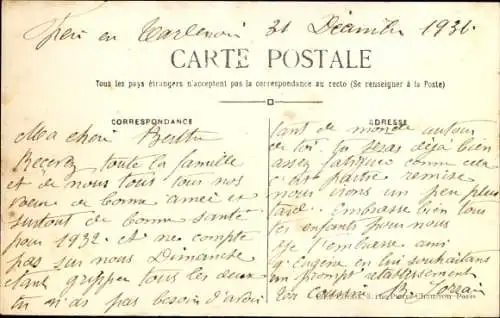 Fère en Tardenois 31 Décembre 1931
CARTE POSTALE
Tous les pays étrangers n'acceptent pas la correspondance au recto (Se renseigner à la Poste)
CORRESPONDANCE
ADRESSE
Ma cheri Berthe
Recevez toute la famille
et de nous tous tous nos
voeux de bonne année et
surtout de bonne santé
pour 1932 et ne compte
pas sur nous Dimanche
étant gripper tous les deux
tu n'as pas besoin d'avoir
tant de monde autour
de toi tu seras déjà bien
assez fatiguée comme cela
c'est partie remise
nous irons un peu plus
tard. Embrasse bien tous
les enfants pour nous
Je t'embrasse ainsi
q'Eugène en lui souhaitant
un prompt rétablissement
Ton cousin
Lorrain